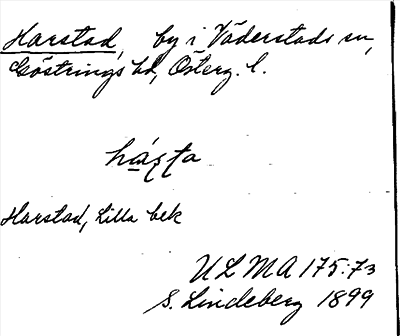 Harstad, by i Väderstads sn,
Göstrings hd, Österg. l.
Harstad, Lilla bek
ULMA 175:73
S. Lindeberg 1899